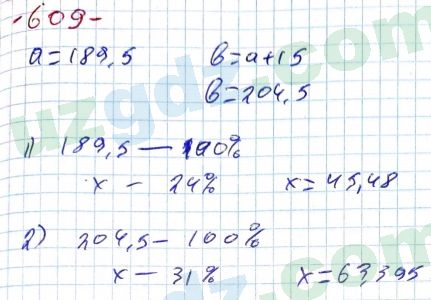 -609-
a=189,5 b=a+15
b=204,5
1) 189,5 — 100%
x — 24% x=45,48
2) 204,5 — 100%
x — 31% x=63,395
uzgdz.com